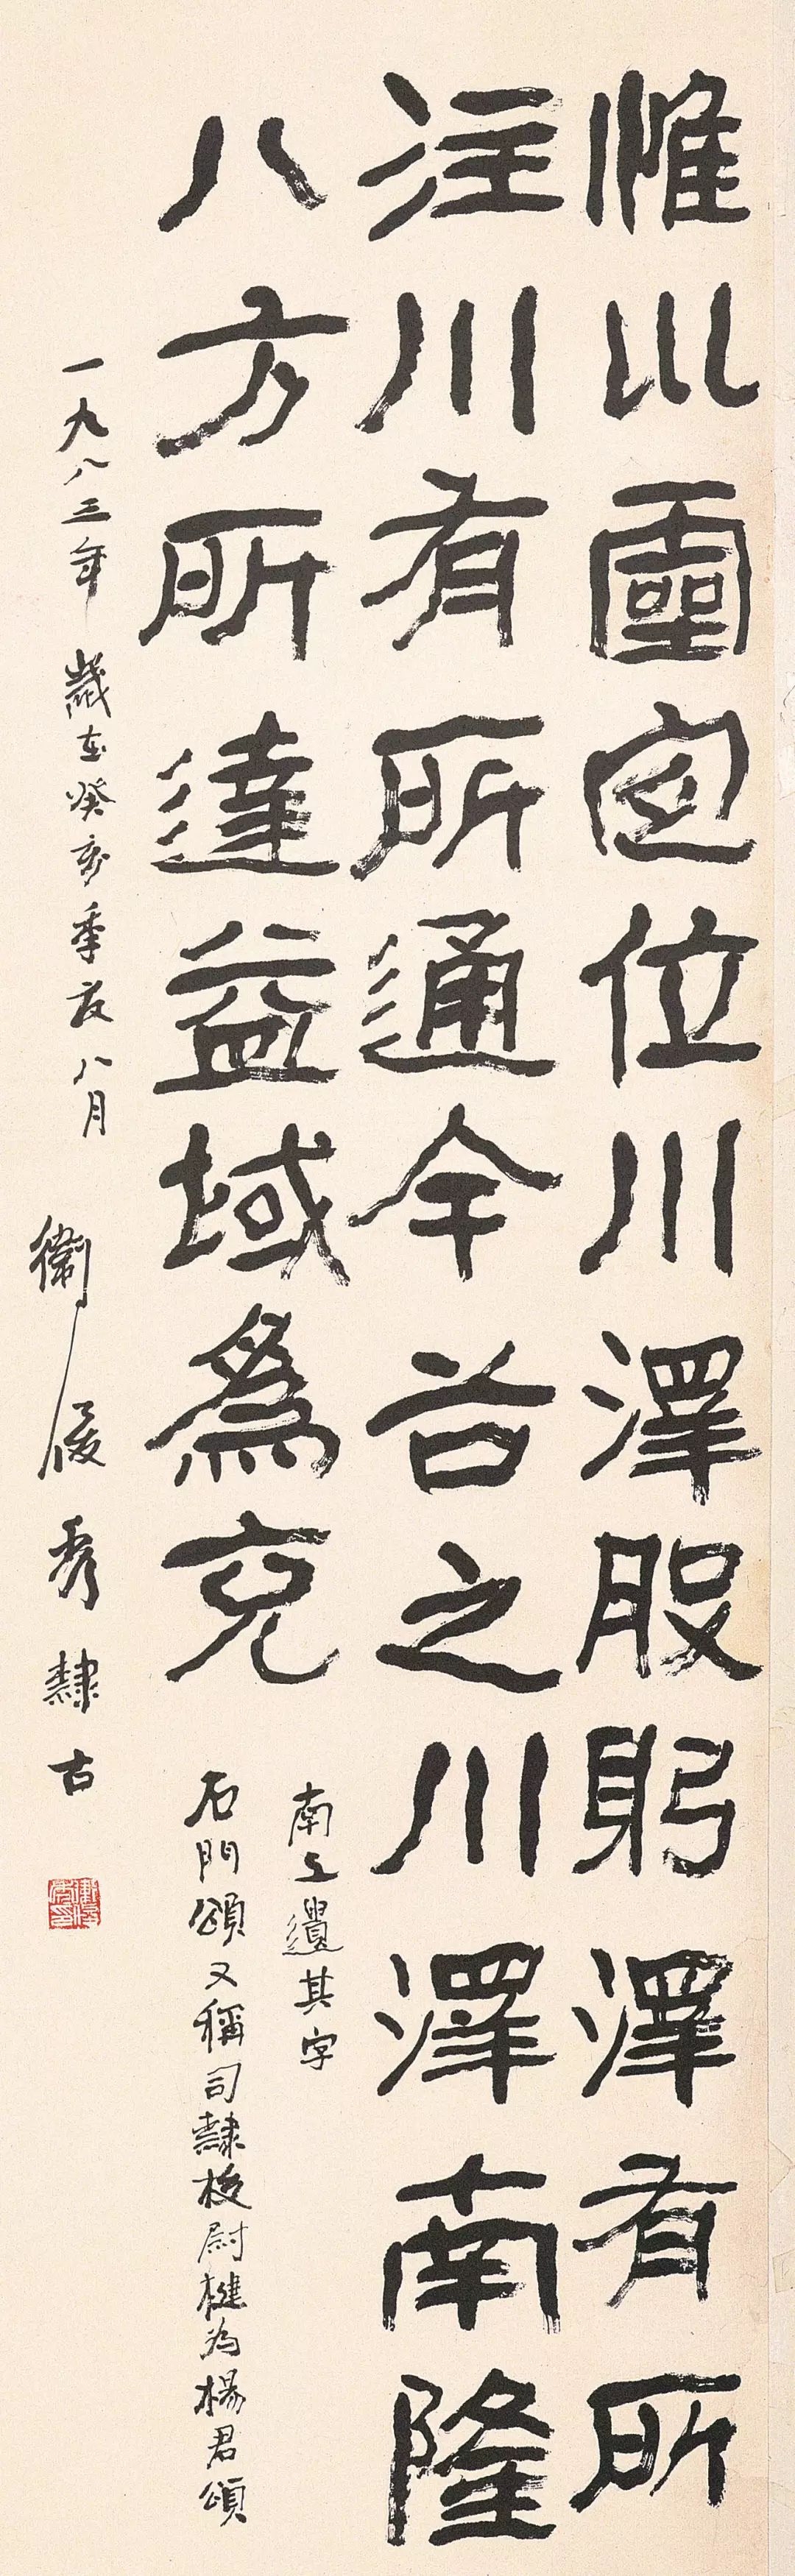 惟巛靈定位川澤股躬澤有所
注川有所通余谷之川澤南隆
八方所達益域爲充
南上遺其字
石門頌又稱司隸校尉楗为楊君頌
一九八三年歲在癸亥季夏八月
衛俊秀隸古